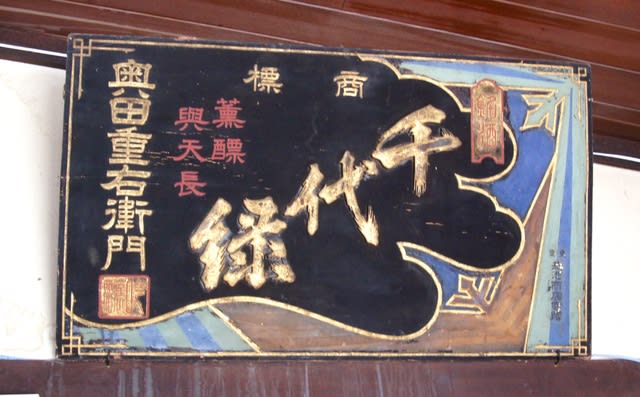 商標
銘酒
千代緑
薫醥
與天長
奥田重右衛門